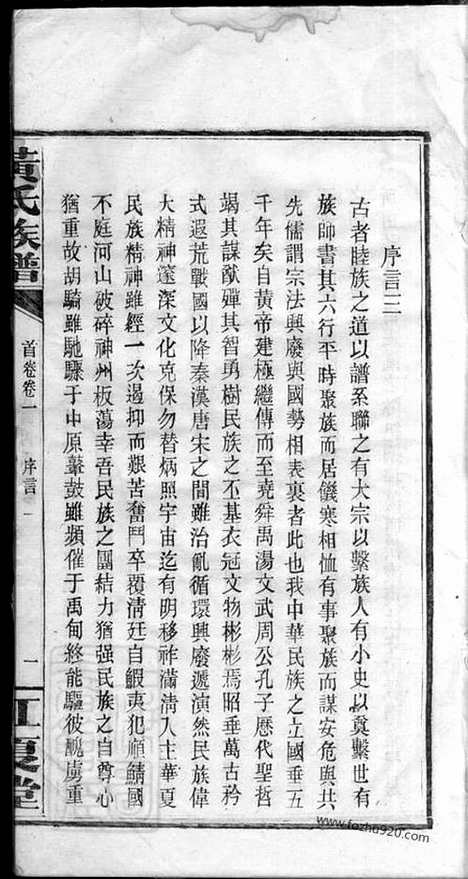 序言三
古者睦族之道以譜系聯之有大宗以繫族人有小史以奠繫世有
族師書其六行平時聚族而居饑寒相恤有事聚族而謀安危與共
先儒謂宗法興廢與國勢相表裏者此也我中華民族之立國垂五
千年矣自黃帝建極繼傳而至堯舜禹湯文武周公孔子歷代聖哲
竭其謀猷殫其智勇樹民族之丕基衣冠文物彬彬焉昭垂萬古矜
式遐荒戰國以降秦漢唐宋之間雖治亂循環興廢遞演然民族偉
大精神邃深文化克保勿替炳照宇宙迄有明移祚滿清入主華夏
民族精神雖經一次過抑而艱苦奮鬥卒覆清廷自鰕夷犯順鯖國
不庭河山破碎神州板蕩幸吾民族之團結力猶强民族之自尊心
猶重故胡騎雖馳驟于中原鼙鼓雖頻催于禹甸終能驅彼醜虜重
黃氏族譜
首卷卷一
序言
一
江夏堂
www.fozhu920.com